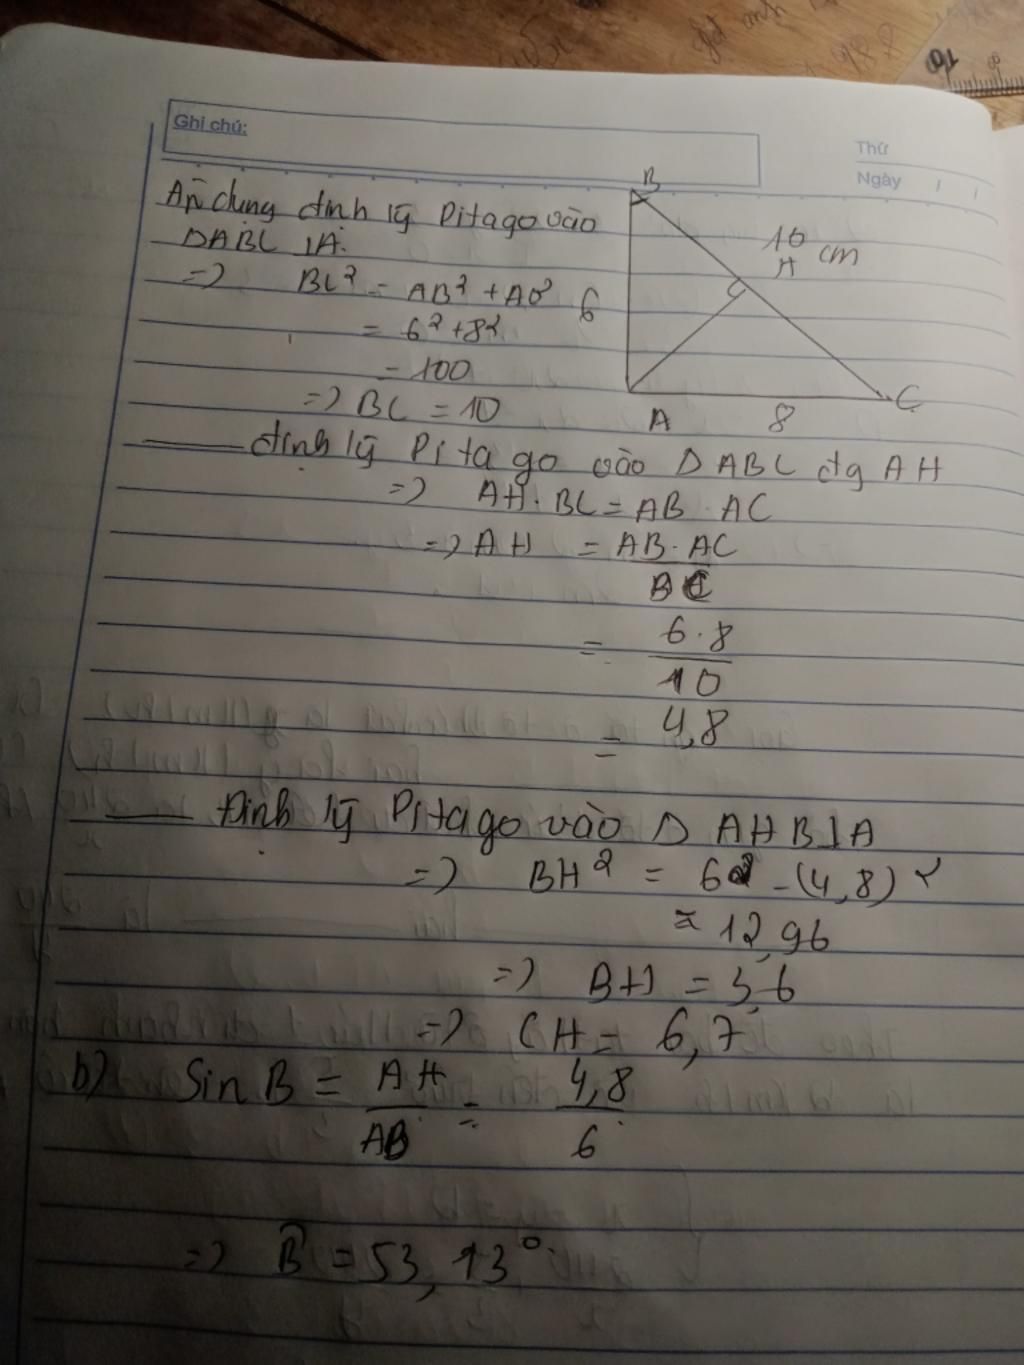 Ghi chú:
Thứ
Ngày
Áp dụng định lý Pitago vào
ΔABC ⊥A.
=> BC² = AB² + AC²
= 6² + 8²
= 100
=> BC = 10
B
10 cm
H
6
A 8 C
định lý Pitago vào Δ ABC đg AH
=> AH . BC = AB . AC
=> AH = AB . AC
BC
= 6 . 8
10
= 4,8
Định lý Pitago vào Δ AHB⊥A
=> BH² = 6² - (4,8)²
= 12,96
=> BH = 3,6
=> CH = 6,7
b) Sin B = AH = 4,8
AB 6
=> B̂ = 53,13°